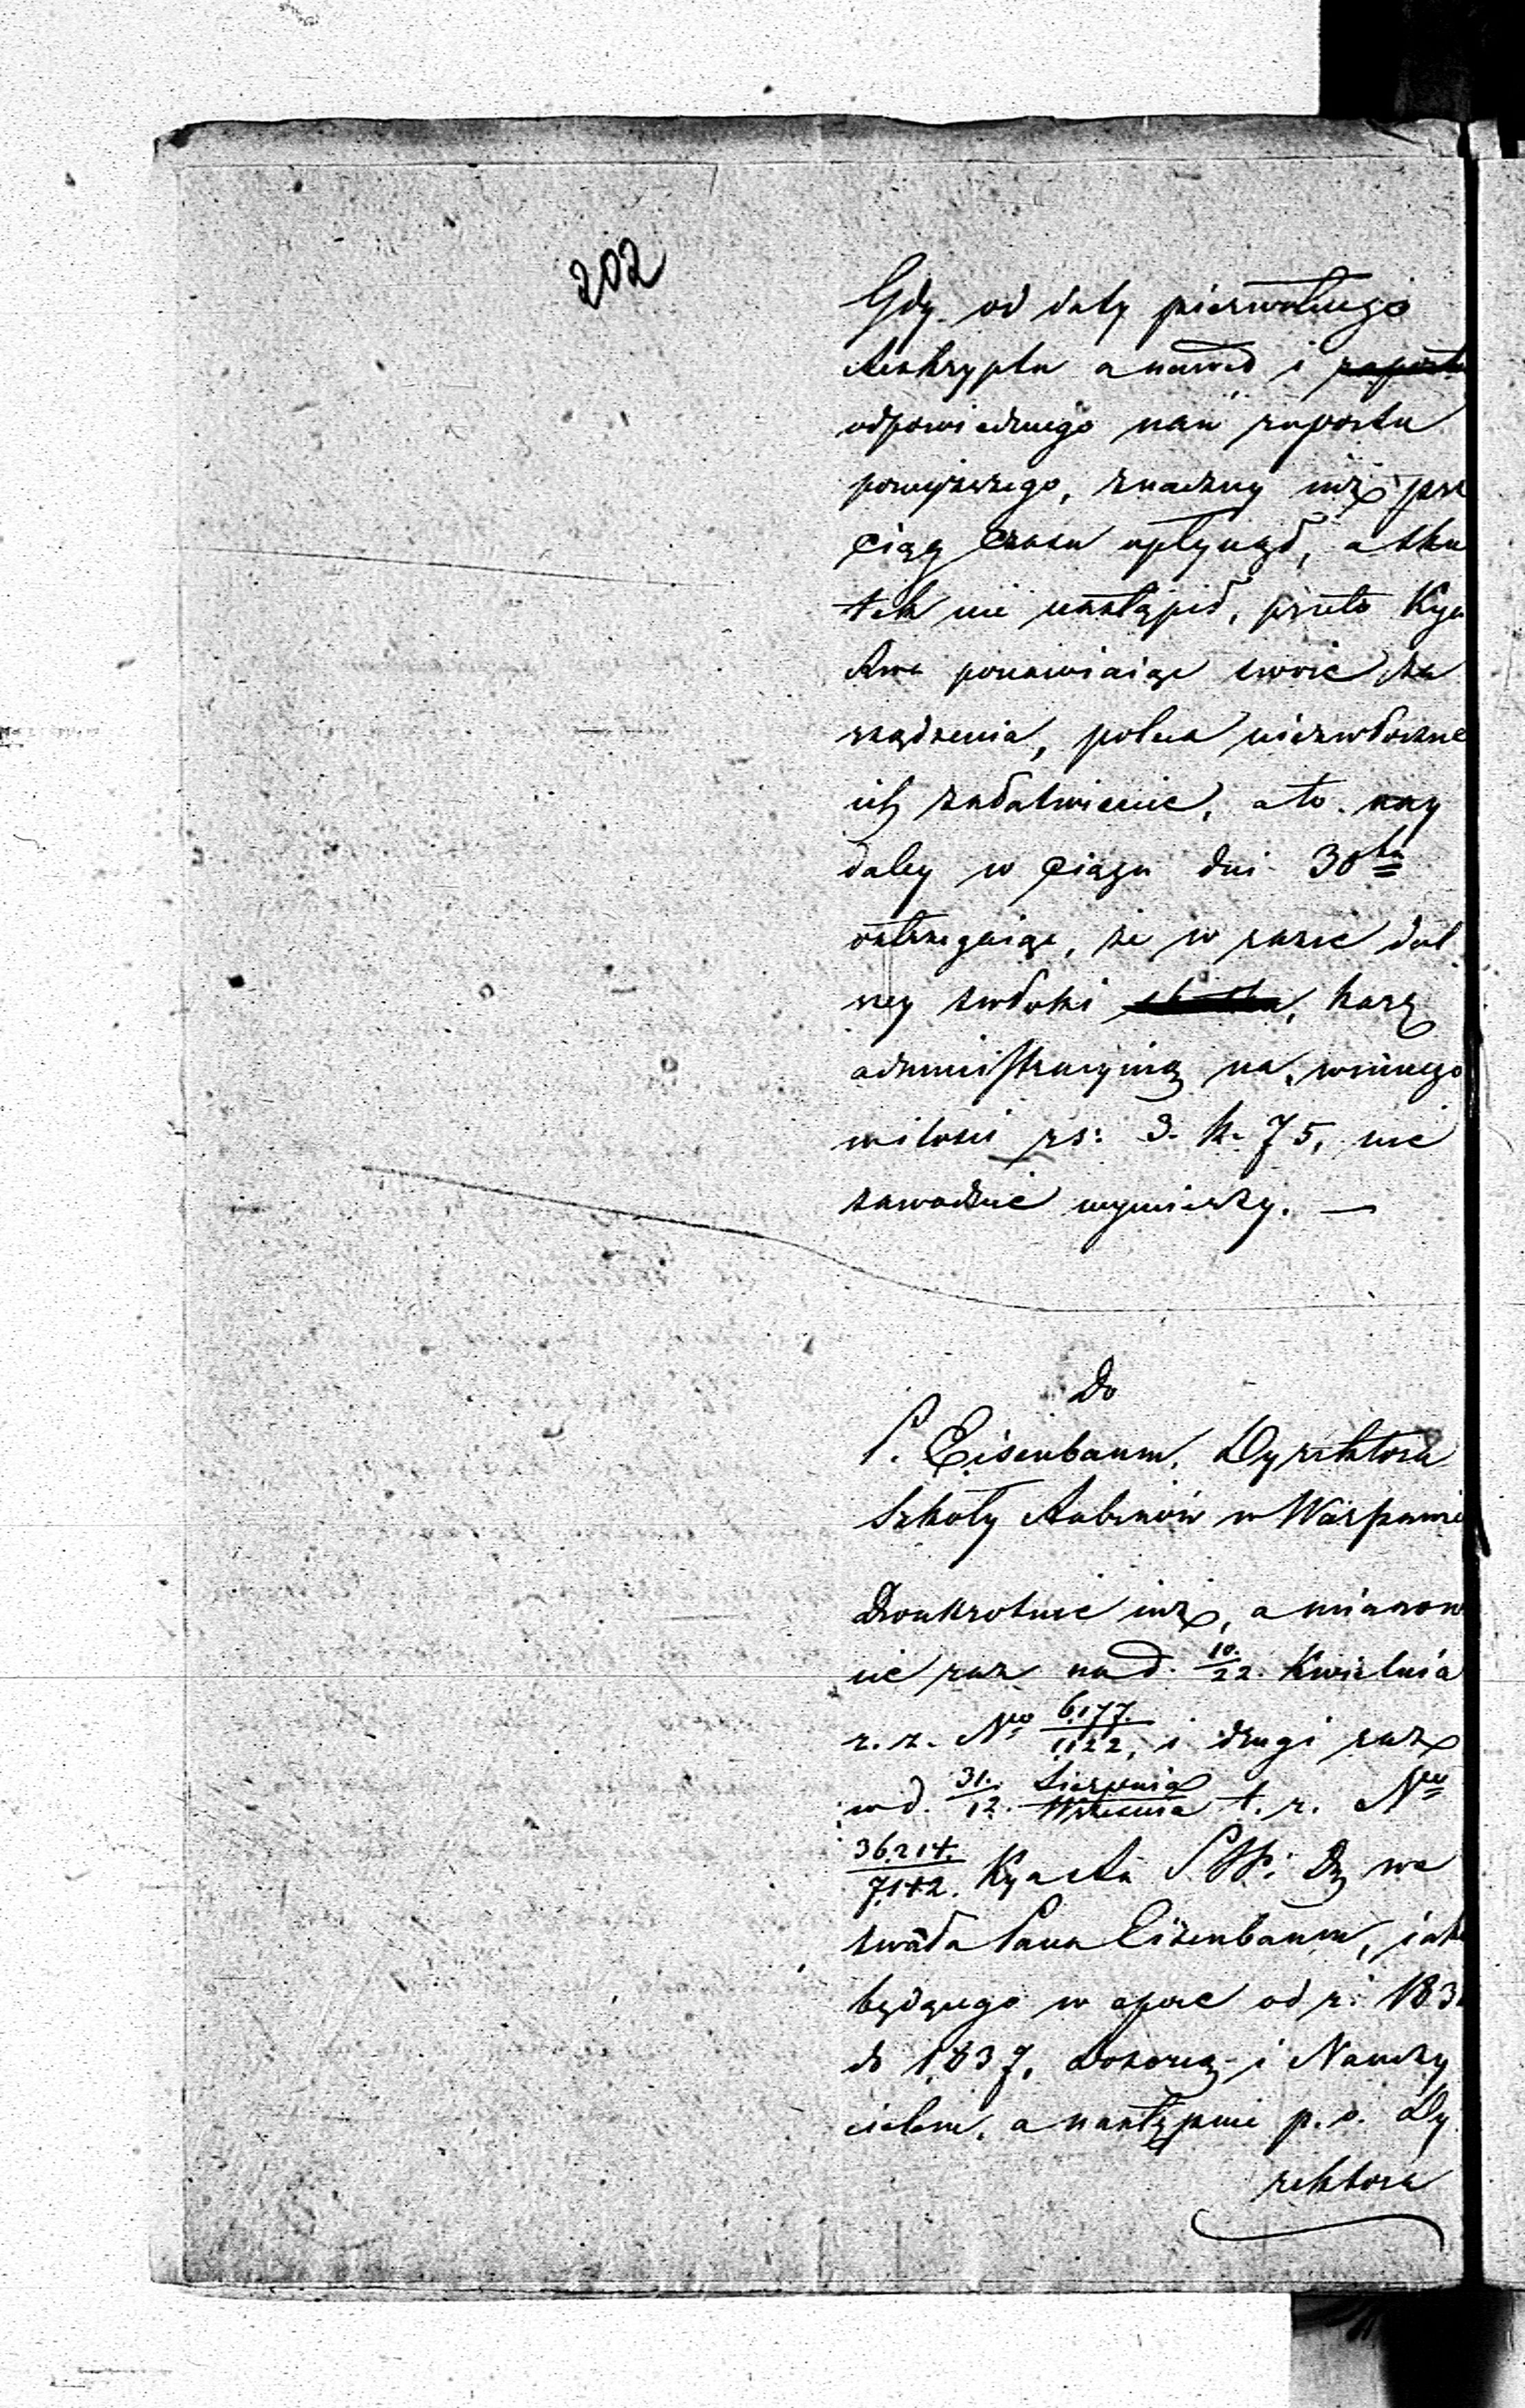 202
Gdy od daty pierwotnego
Reskryptu a nawed i raportu
odpowiedniego nań raportu
powyższego, znaczny iuż prze
ciąg czasu upłynął, a sku
tek nie nastąpił, przeto Kyu
Rwa ponawiaiąc swoie za
rządzenia, poleca niezwłoczne
ich załatwienie, a to nay
daley w ciągu dni 30tu
ostrzegaiąc, że w razie dal
szey zwłoki karę
administracyiną na winnego
w ilości rs: 3. k. 75, nie
zawodnie wymierzy. —
Do
P. Eisenbaum, Dyrektora
Szkoły Rabinów w Warszawie
Dwukrotnie iuż, a mianow
nie raz na d. 10./22. Kwietnia
r. z. No 6177./1122, i drugi raz
w d. 31./12. Sierpnia/Września t. r. No
36214./7142. Kya Rz we
zwała Pana Eisenbaum, iako
będącego w epoce od r. 183
do 1837, Dozorcą i Nauczy
cielem, a następnie p. o. Dy
rektora